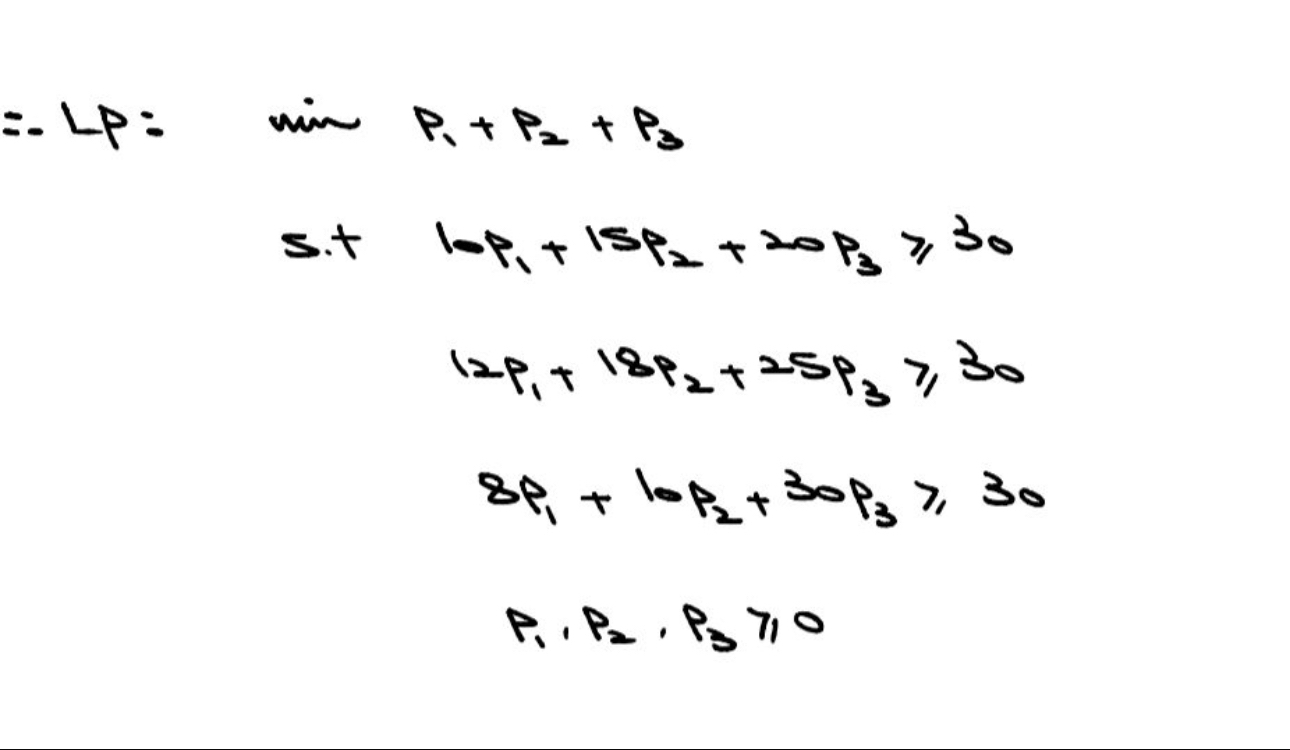 =. LP: min P₁ + P₂ + P₃
s.t 10P₁ + 15P₂ + 20P₃ ⩾ 30
12P₁ + 18P₂ + 25P₃ ⩾ 30
8P₁ + 10P₂ + 30P₃ ⩾ 30
P₁ , P₂ , P₃ ⩾ 0